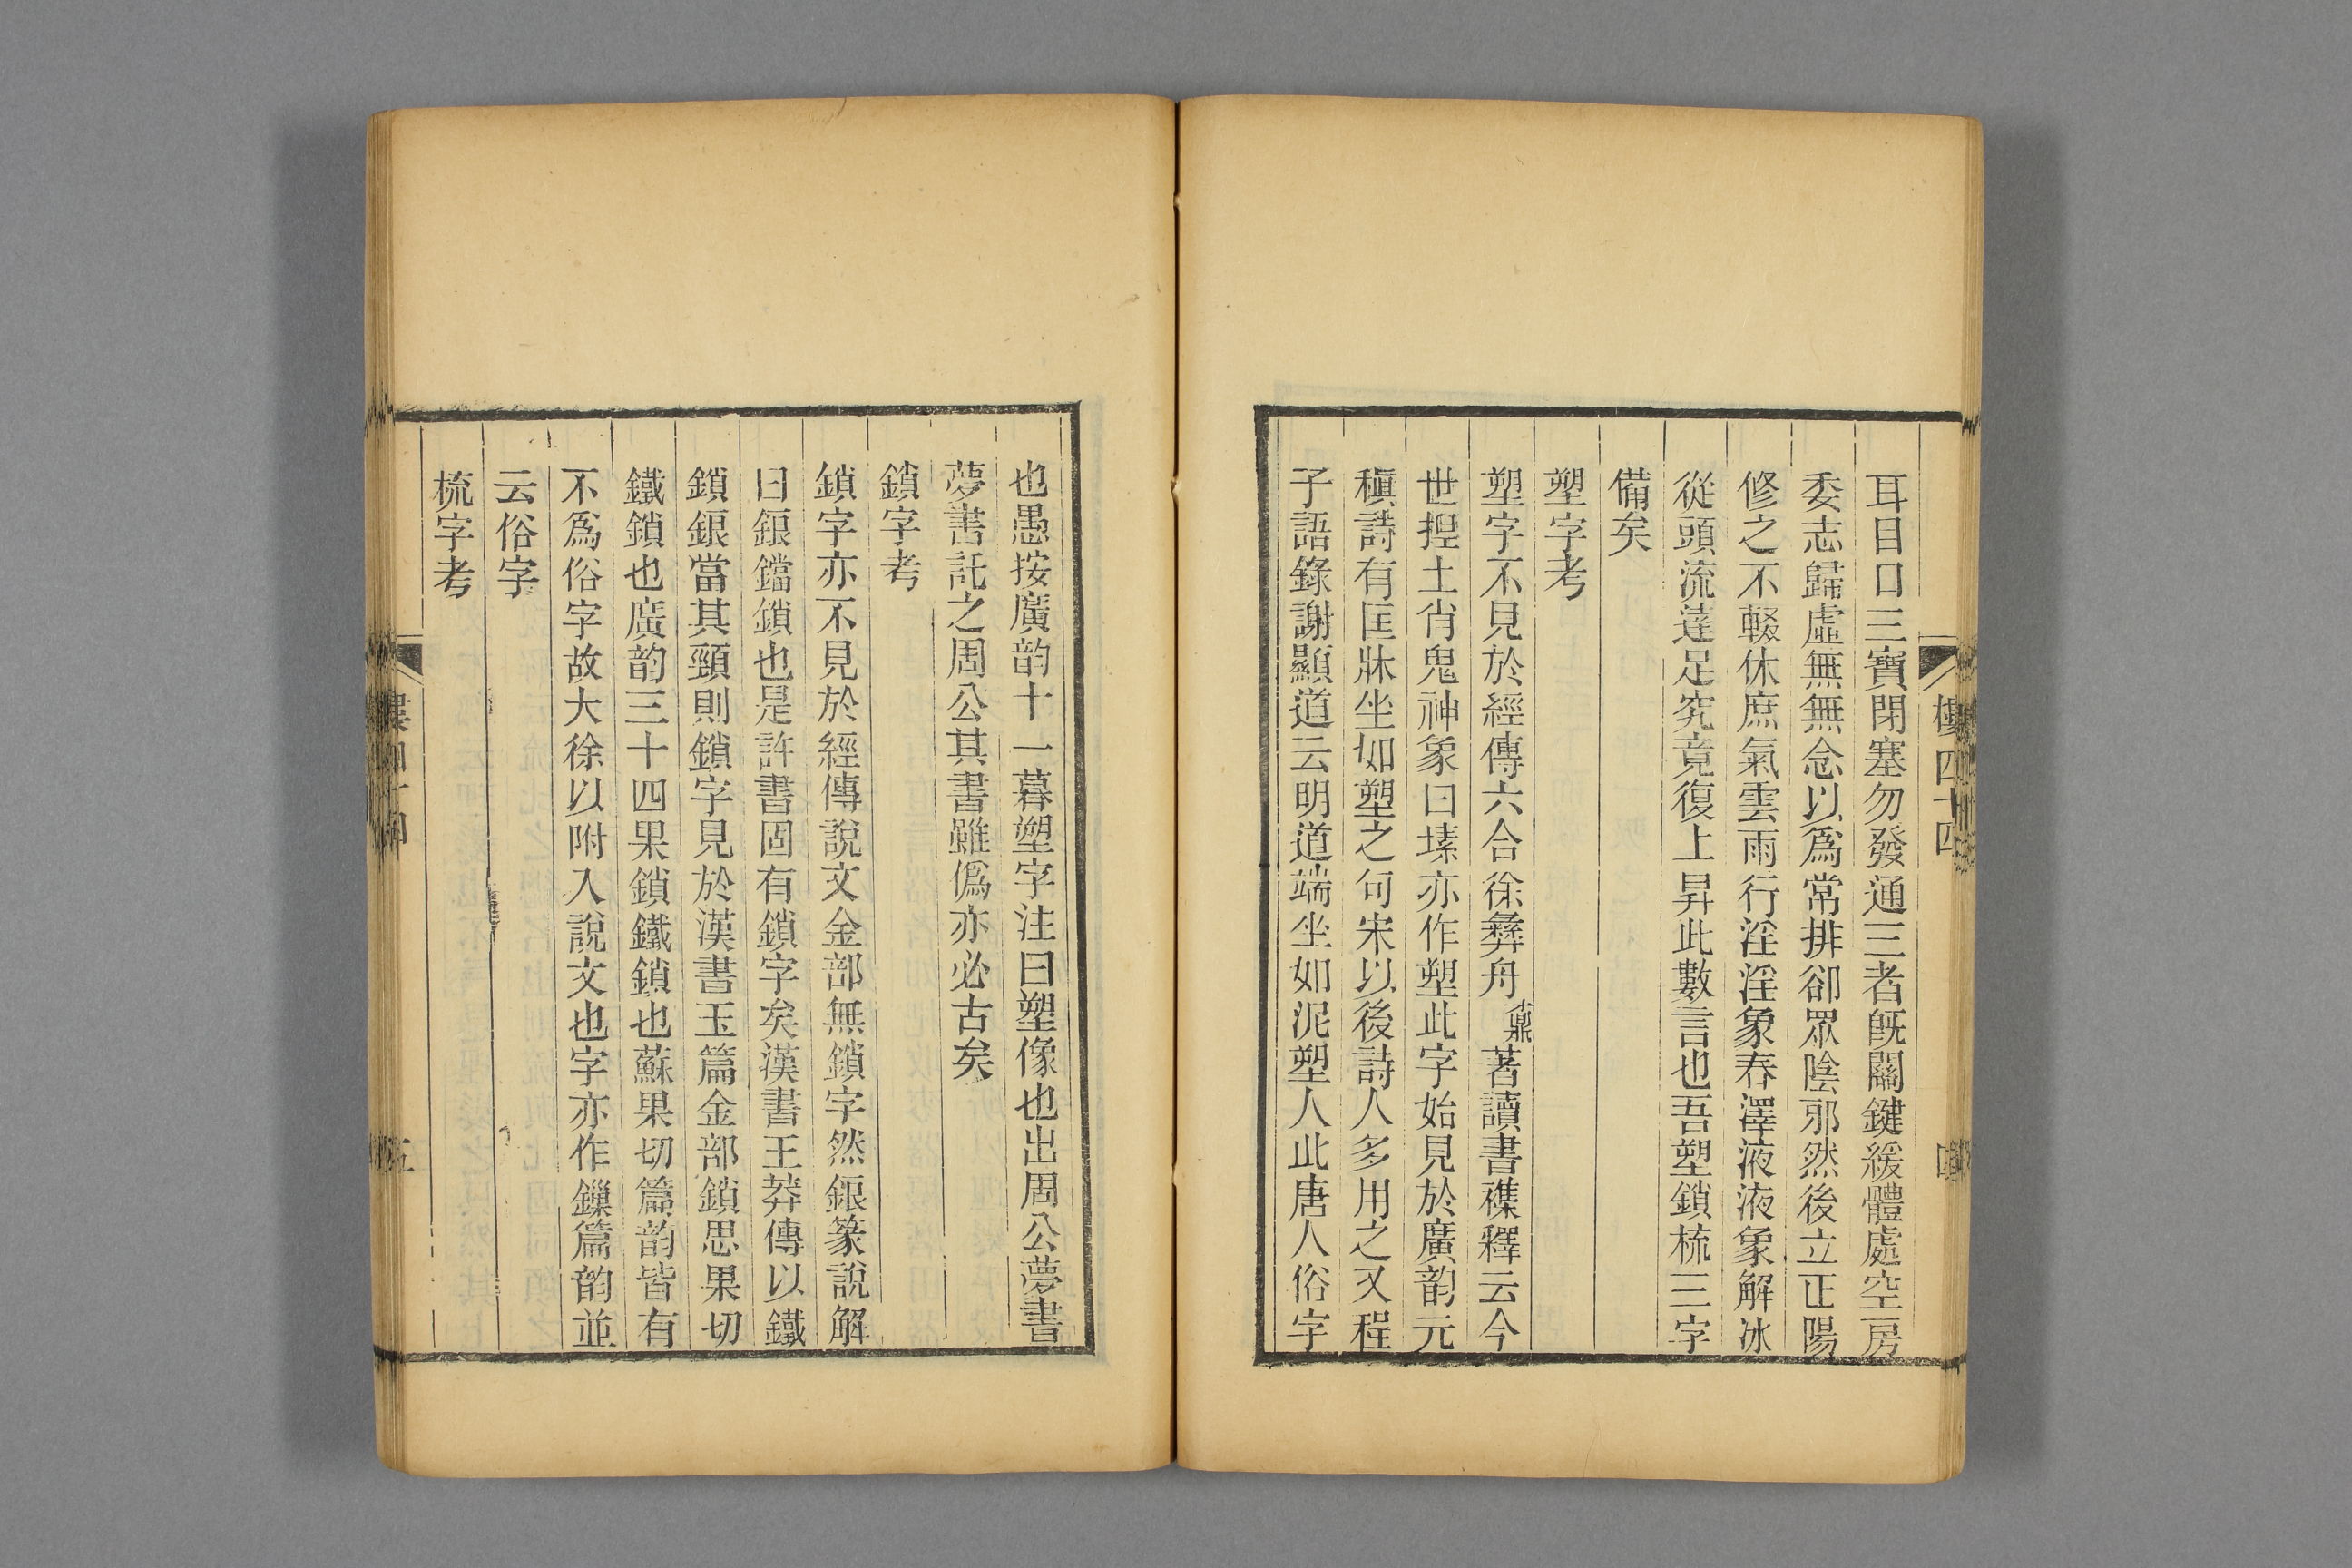 耳目口三寶閉塞勿發通三者旣關鍵緩體處空房
委志歸虛無無念以爲常排卻眾陰邪然後立正陽
修之不輟休庶氣雲雨行淫淫象春澤液液象解冰
從頭流達足究竟復上昇此數言也吾塑鎖梳三字
備矣
塑字考
塑字不見於經傳六合徐彝舟鼒著讀書襍釋云今
世揑土肖鬼神象曰塐亦作塑此字始見於廣韵元
稹詩有匡牀坐如塑之句宋以後詩人多用之又程
子語錄謝顯道云明道端坐如泥塑人此唐人俗字
樓四十四
也愚按廣韵十一暮塑字注曰塑像也出周公夢書
夢書託之周公其書雖僞亦必古矣
鎖字考
鎖字亦不見於經傳說文金部無鎖字然鋃篆說解
曰鋃鐺鎖也是許書固有鎖字矣漢書王莽傳以鐵
鎖鋃當其頸則鎖字見於漢書玉篇金部鎖思果切
鐵鎖也廣韵三十四果鎖鐵鎖也蘇果切篇韵皆有
不爲俗字故大徐以附入說文也字亦作鏁篇韵並
云俗字
梳字考
五